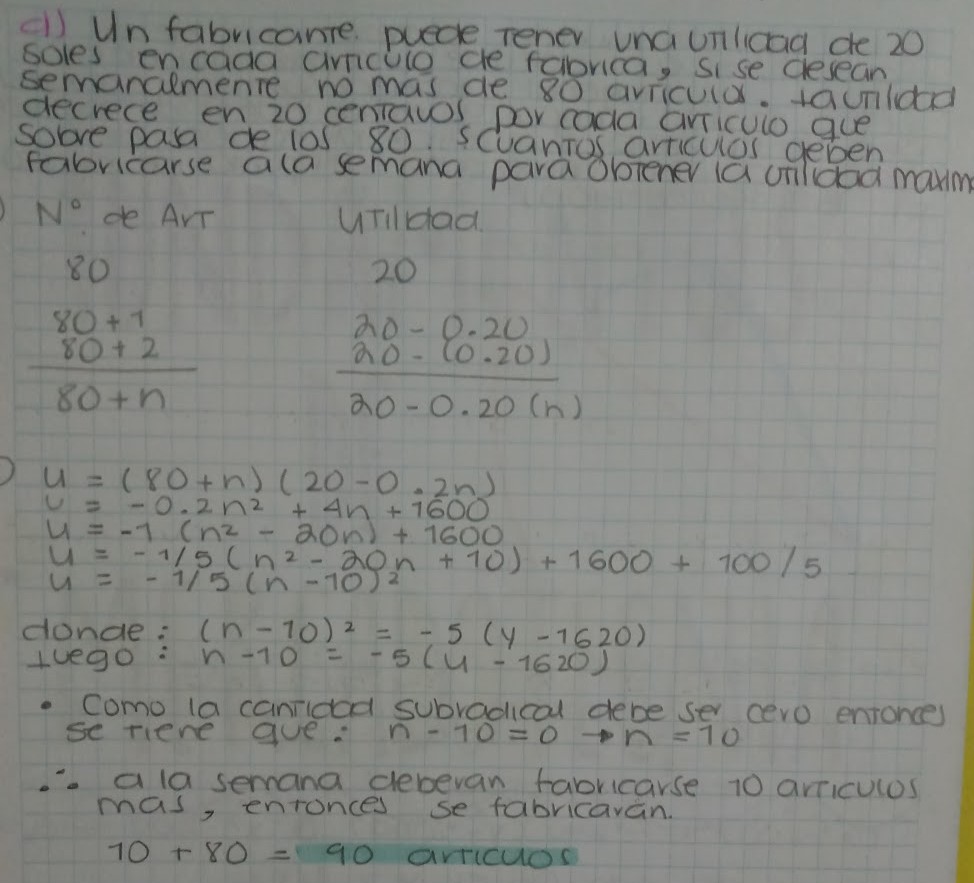 d) Un fabricante puede tener una utilidad de 20
soles en cada articulo de fabrica, si se desean
semanalmente no mas de 80 articulos. La utilidad
decrece en 20 centavos por cada articulo que
sobre pasa de los 80. ¿Cuantos articulos deben
fabricarse a la semana para obtener la utilidad maxim
N° de Art utilidad
80 20
80+1 20 - 0.20
80+2 20 - (0.20)
80+n 20 - 0.20 (n)
u = (80+n) (20-0.2n)
u = -0.2n² + 4n + 1600
u = -1 (n² - 20n) + 1600
u = -1/5 (n² - 20n + 10) + 1600 + 100/5
u = -1/5 (n-10)²
donde: (n-10)² = -5 (y-1620)
Luego: n-10 = -5 (u - 1620)
• Como la cantidad subradical debe ser cero entonces
se tiene que: n-10=0 → n=10
∴ a la semana deberan fabricarse 10 articulos
mas, entonces se fabricarán.
10 + 80 = 90 articuos